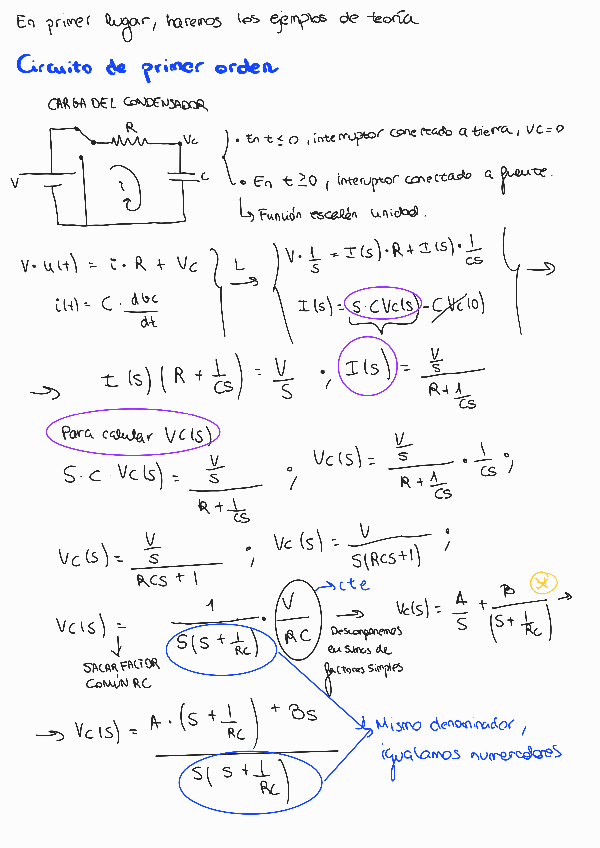 En primer lugar, haremos los ejemplos de teoría
Circuito de primer orden
CARGA DEL CONDENSADOR
R
Vc
V
i
C
• En t ≤ 0, interruptor conectado a tierra, VC=0
• En t ≥ 0, interruptor conectado a fuente.
↳ Función escalón unidad.
V · u(t) = i · R + Vc
i(t) = C · dvc/dt
L →
V · 1/S = I(s) · R + I(s) · 1/CS →
I(s) = S · C Vc(s) - C Vc(0)
→ I(s) (R + 1/CS) = V/S ; I(s) = (V/S)/(R + 1/CS)
Para calcular VC(s)
S · C · Vc(s) = (V/S)/(R + 1/CS) ; Vc(s) = (V/S)/(R + 1/CS) · 1/CS ;
Vc(s) = (V/S)/(RCS + 1) ; Vc(s) = V/(S(RCS+1)) ;
Vc(s) = 1/(S(S + 1/RC)) · V/RC → cte
SACAR FACTOR
COMÚN RC
→ Descomponemos
en sumas de
factores simples
Vc(s) = A/S + B/(S + 1/RC) * →
→ Vc(s) = (A · (S + 1/RC) + BS)/(S(S + 1/RC))
Mismo denominador,
igualamos numeradores